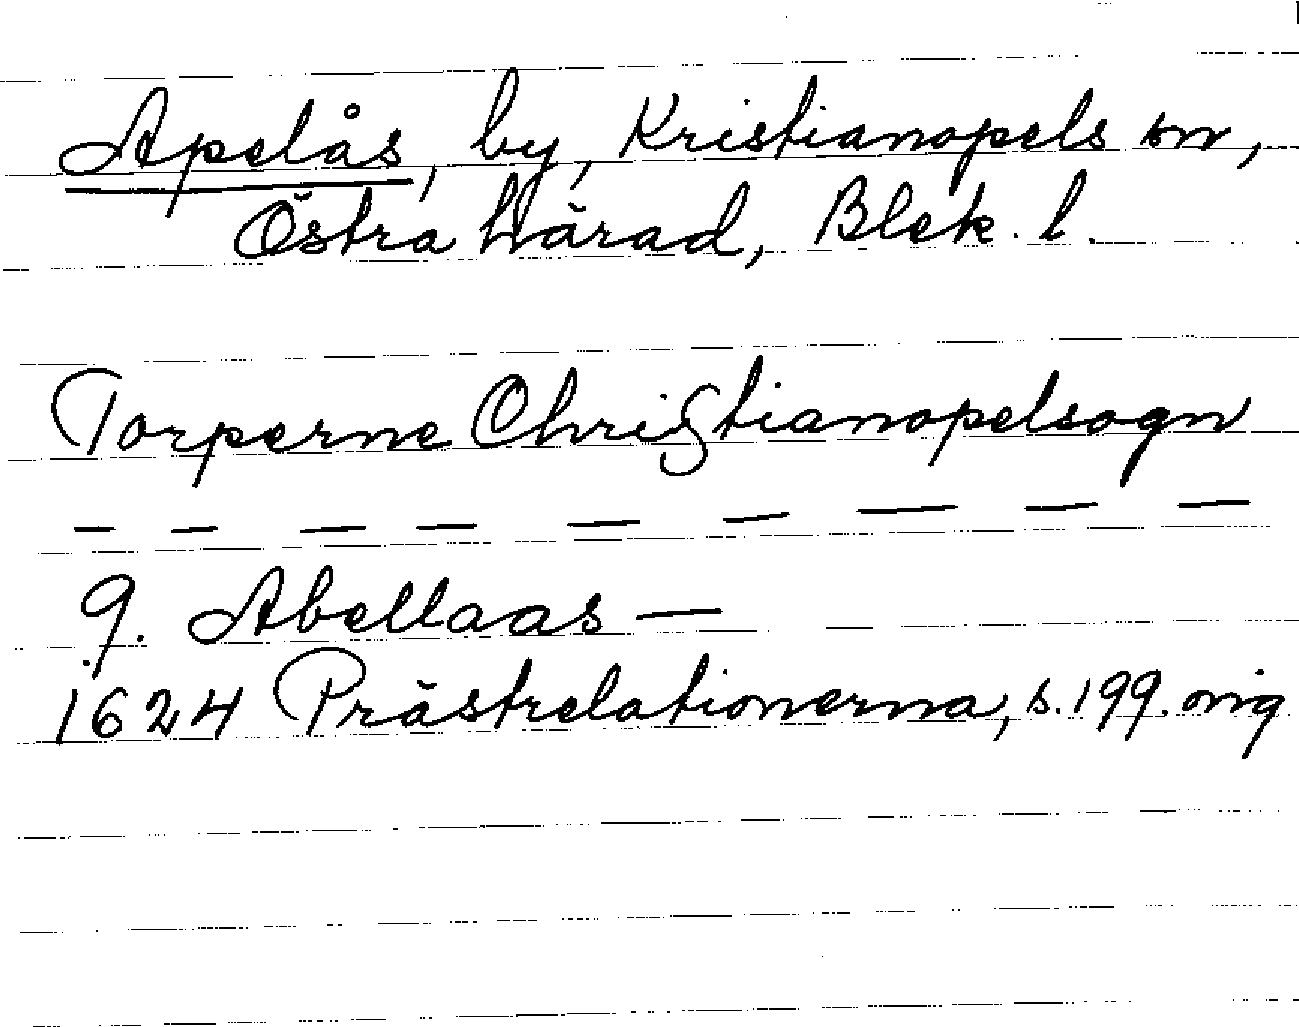 Apelås, by, Kristianopels sn,
Östra härad, Blek. l.
Torperne Christianopelsogn
— — — — — — — — —
9. Abellaas —
1624 Prästrelationerna, s. 199. orig